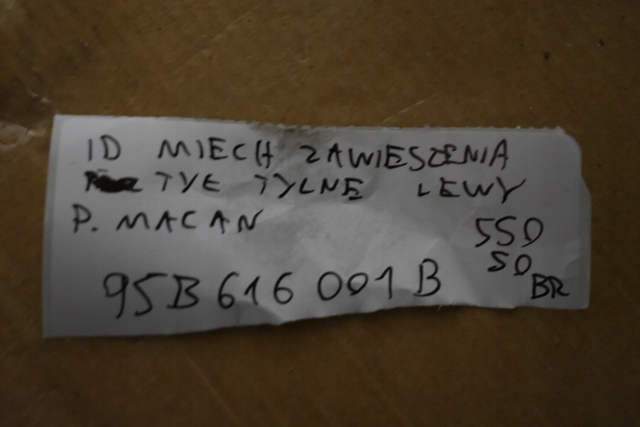 ID MIECH ZAWIESZENIA
TYŁ TYLNE LEWY
P. MACAN
550
50
BR
95B 616 001 B